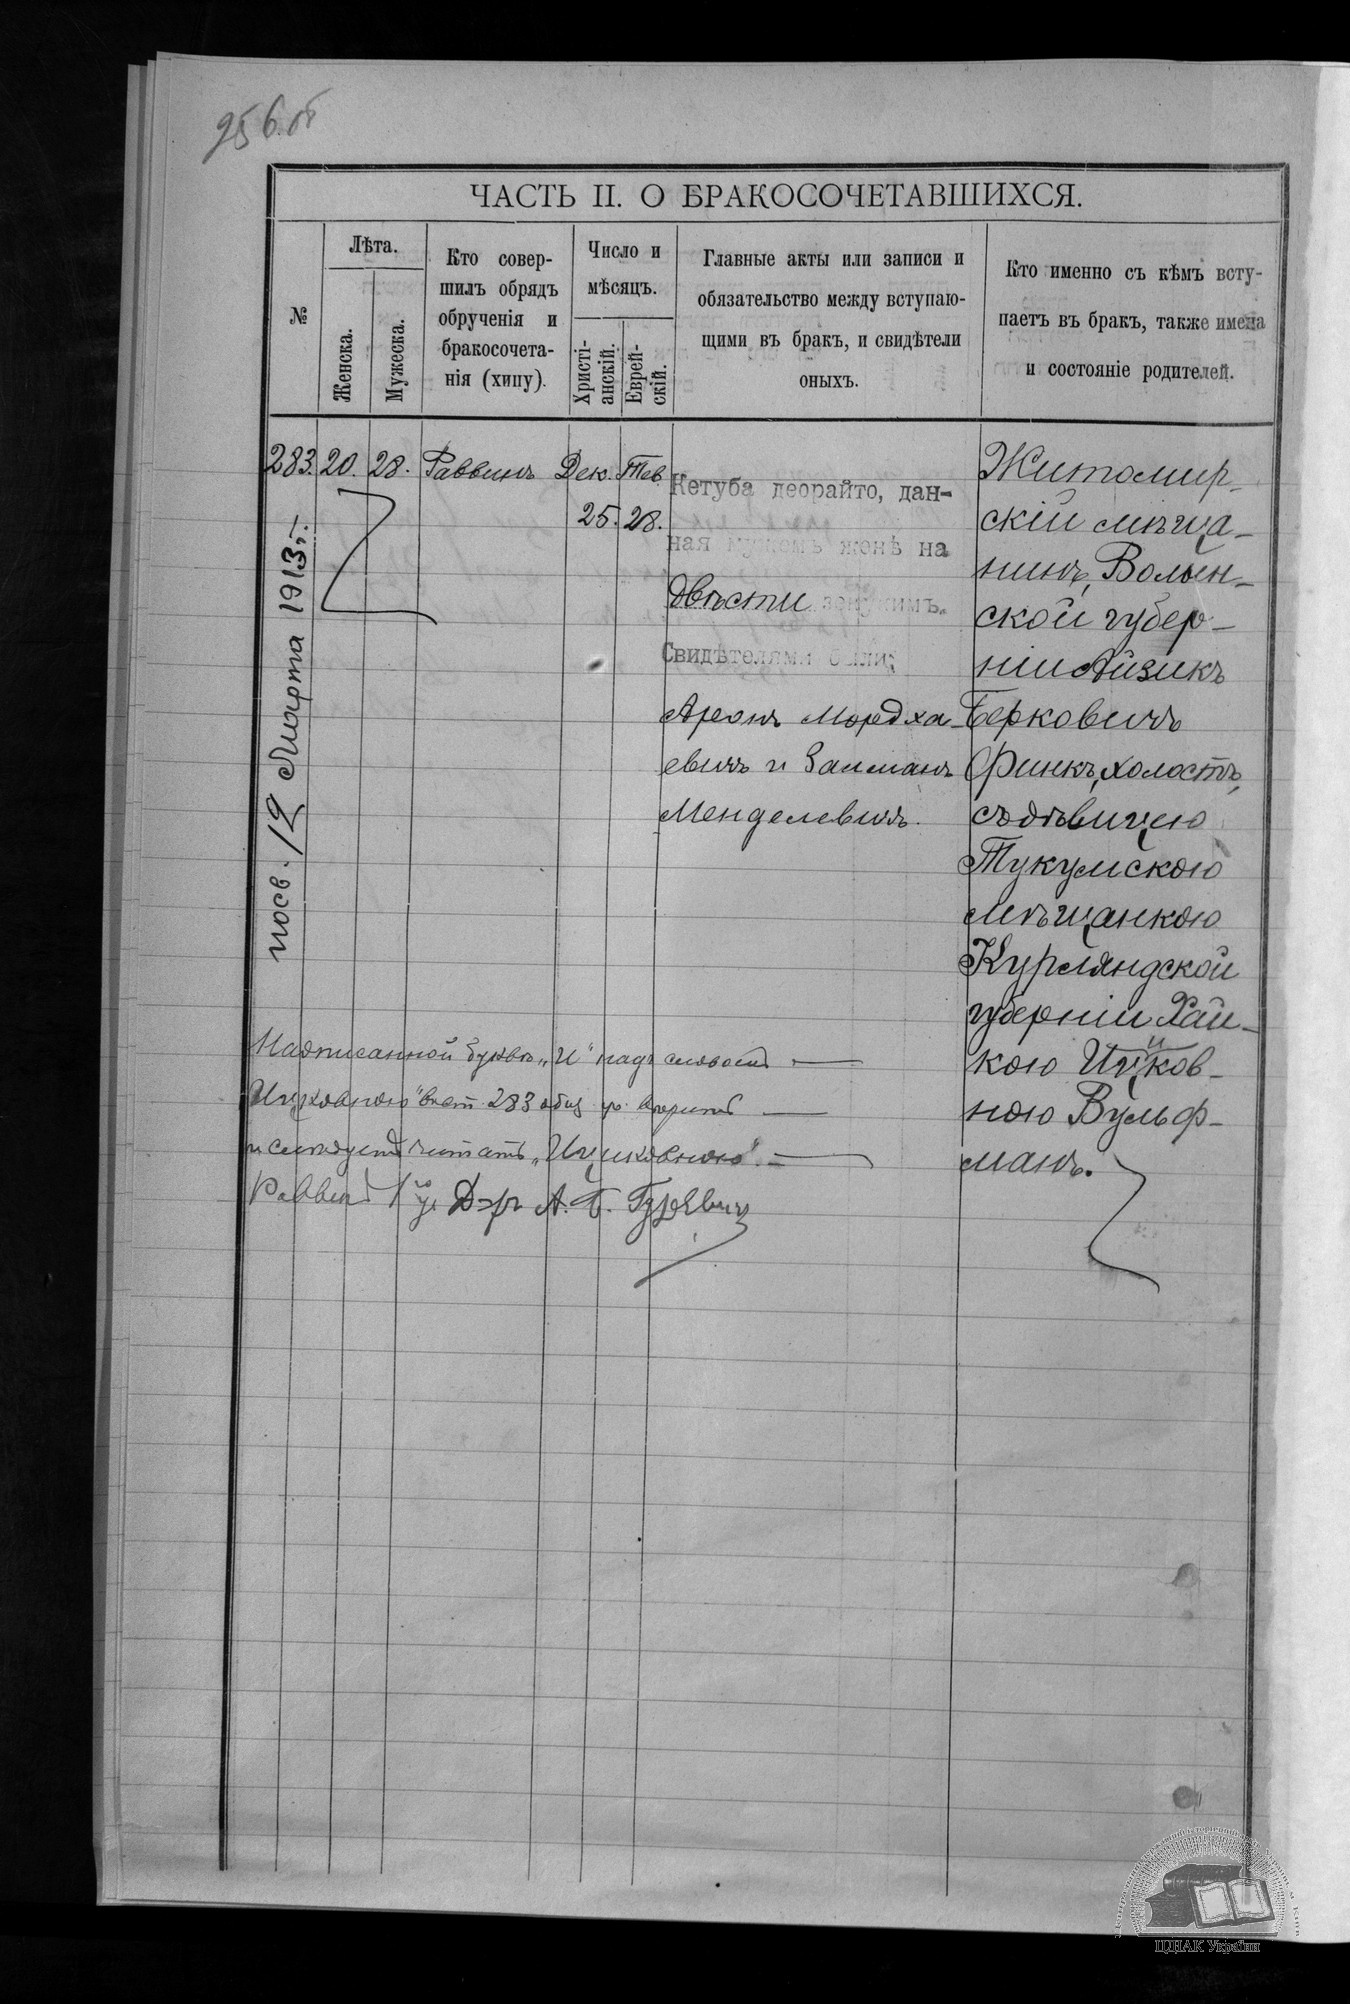 256 об
ЧАСТЬ II. О БРАКОСОЧЕТАВШИХСЯ.
№
Лѣта.
Женска.
Мужеска.
Кто совер-
шилъ обрядъ
обрученія и
бракосочета-
нія (хипу).
Число и
мѣсяцъ.
Христі-
анскій.
Еврей-
скій.
Главные акты или записи и
обязательство между вступаю-
щими въ бракъ, и свидѣтели
оныхъ.
Кто именно съ кѣмъ всту-
паетъ въ бракъ, также имена
и состояніе родителей.
283. 20. 28. Раввинъ Дек. Тев.
25. 28.
Кетуба деорайто, дан-
ная мужемъ женѣ на
двѣсти зекукимъ.
Свидѣтелями были:
Аронъ Мордха-
евичъ и Залманъ
Менделевичъ.
Житомир-
скій мѣща-
нинъ, Волын-
ской губер-
ніи Айзикъ
Берковичъ
Финкъ, холостъ,
съ дѣвицею
Тукумскою
мѣщанкою
Курляндской
губерніи Хай-
кою Ицков-
и
ною Вульф-
манъ.
посв. 12 Марта 1913 г.
Надписанной буквѣ „и" надъ словомъ
„Ицковною" въ ст. 283 вѣрить
и слѣдуетъ читать „Ициковною".
Раввинъ Д-ръ А. Б. Гуревичъ
ЦДІАК України